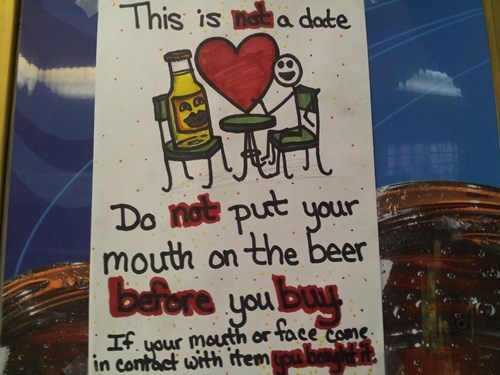 This is not a date
Do not put your
mouth on the beer
before you buy.
If your mouth or face come
in contact with item you bought it.